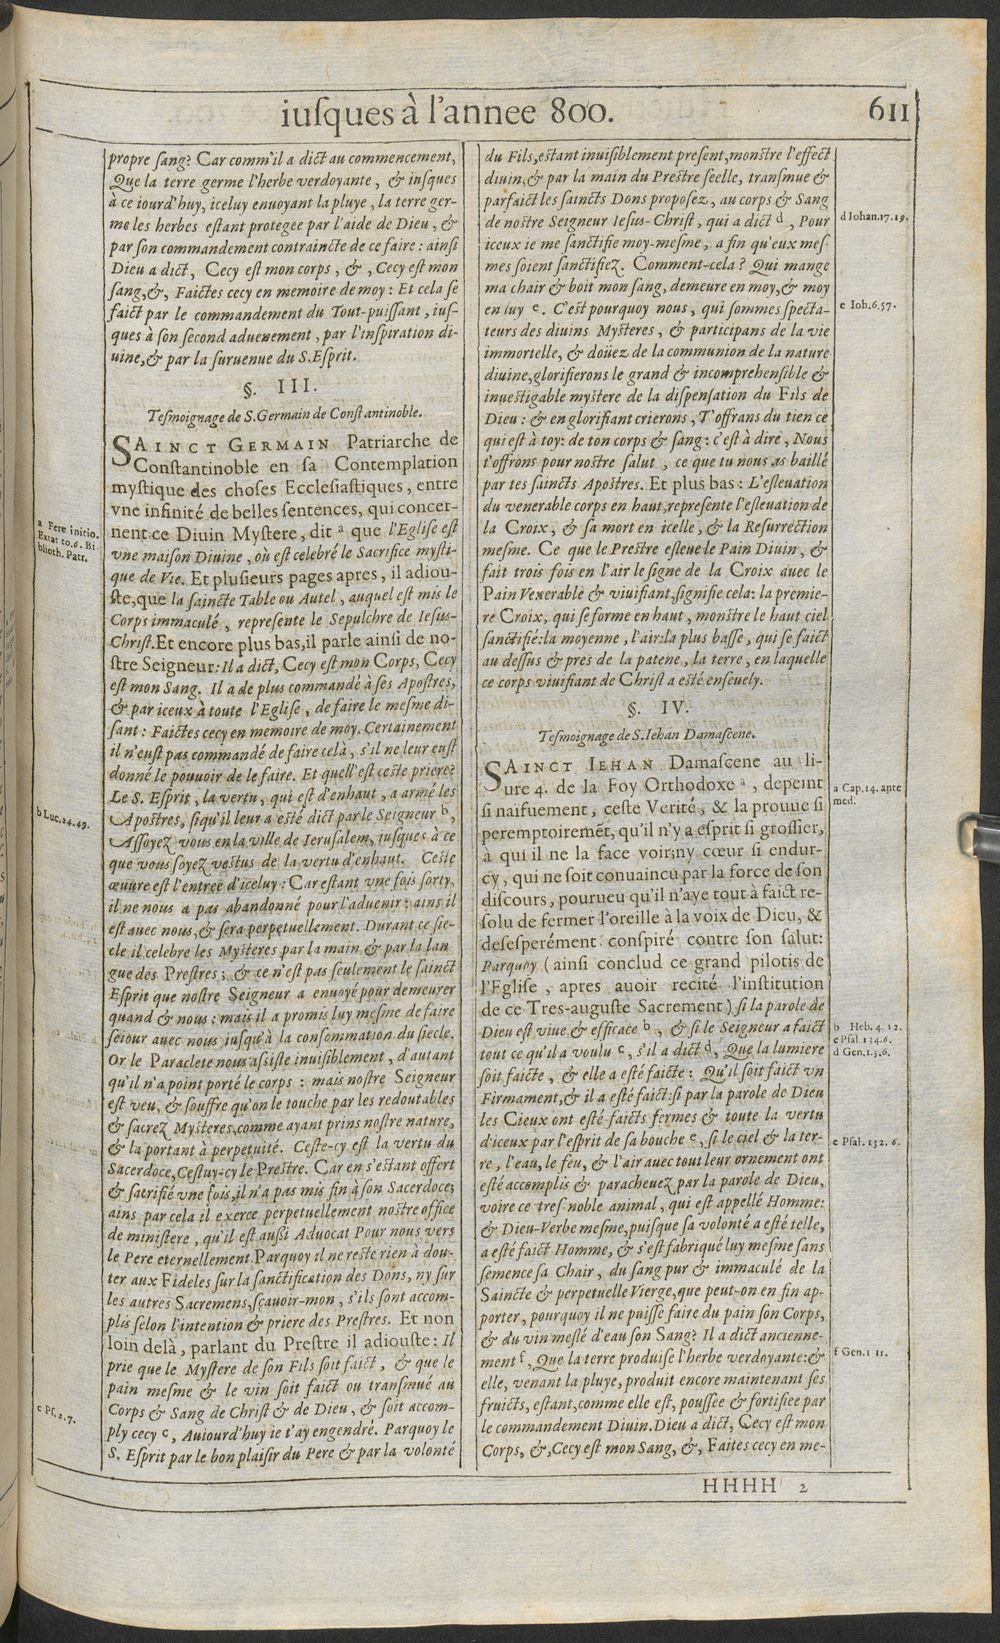 iuſques à l'annee 800.
611
propre ſang? Car comm'il a dict au commencement,
Que la terre germe l'herbe verdoyante, & iuſques
à ce iourd'huy, iceluy enuoyant la pluye, la terre ger-
me les herbes eſtant protegee par l'aide de Dieu, &
par ſon commandement contraincte de ce faire: ainſi
Dieu a dict, Cecy eſt mon corps, &, Cecy eſt mon
ſang, &, Faictes cecy en memoire de moy: Et cela ſe
faict par le commandement du Tout-puiſſant, iuſ-
ques à ſon ſecond aduenement, par l'inſpiration di-
uine, & par la ſuruenue du S. Eſprit.
§. III.
Teſmoignage de S. Germain de Conſtantinoble.
SAINCT GERMAIN Patriarche de
Conſtantinoble en ſa Contemplation
myſtique des choſes Eccleſiaſtiques, entre
vne infinité de belles ſentences, qui concer-
nent ce Diuin Myſtere, dit a que l'Egliſe eſt
vne maiſon Diuine, où eſt celebré le Sacrifice myſti-
que de Vie. Et pluſieurs pages apres, il adiou-
ſte, que la ſaincte Table ou Autel, auquel eſt mis le
Corps immaculé, repreſente le Sepulchre de Ieſus-
Chriſt. Et encore plus bas, il parle ainſi de no-
ſtre Seigneur: Il a dict, Cecy eſt mon Corps, Cecy
eſt mon Sang. Il a de plus commandé à ſes Apoſtres,
& par iceux à toute l'Egliſe, de faire le meſme di-
ſant: Faictes cecy en memoire de moy. Certainement
il n'euſt pas commandé de faire celà, s'il ne leur euſt
donné le pouuoir de le faire. Et quell'eſt ceſte priere?
Le S. Eſprit, la vertu, qui eſt d'enhaut, a armé les
Apoſtres, ſiqu'il leur a eſté dict par le Seigneur b,
Aſſoyez vous en la ville de Ieruſalem, iuſques à ce
que vous ſoyez veſtus de la vertu d'enhaut. Ceſte
œuure eſt l'entree d'iceluy: Car eſtant vne fois ſorty,
il ne nous a pas abandonné pour l'aduenir: ains il
eſt auec nous, & ſera perpetuellement. Durant ce ſie-
cle il celebre les Myſteres par la main & par la lan
gue des Preſtres; & ce n'eſt pas ſeulement le ſainct
Eſprit que noſtre Seigneur a enuoyé pour demeurer
quand & nous: mais il a promis luy meſme de faire
ſeiour auec nous iuſqu'à la conſommation du ſiecle.
Or le Paraclete nous aſſiſte inuiſiblement, d'autant
qu'il n'a point porté le corps: mais noſtre Seigneur
eſt veu, & ſouffre qu'on le touche par les redoutables
& ſacrez Myſteres, comme ayant prins noſtre nature,
& la portant à perpetuité. Ceſte-cy eſt la vertu du
Sacerdoce, Ceſtuy-cy le Preſtre. Car en s'eſtant offert
& ſacrifié vne fois, il n'a pas mis fin à ſon Sacerdoce;
ains par cela il exerce perpetuellement noſtre office
de miniſtere, qu'il eſt auſſi Aduocat Pour nous vers
le Pere eternellement. Parquoy il ne reſte rien à dou-
ter aux Fideles ſur la ſanctification des Dons, ny ſur
les autres Sacremens, ſçauoir-mon, s'ils ſont accom-
plis ſelon l'intention & priere des Preſtres. Et non
loin delà, parlant du Preſtre il adiouſte: Il
prie que le Myſtere de ſon Fils ſoit faict, & que le
pain meſme & le vin ſoit faict ou tranſmué au
Corps & Sang de Chriſt & de Dieu, & ſoit accom-
ply cecy c, Auiourd'huy ie t'ay engendré. Parquoy le
S. Eſprit par le bon plaiſir du Pere & par la volonté
a Fere initio.
Extat to. 6. Bi
blioth. Patr.
b Luc. 24. 49.
c Pſ. 2. 7.
du Fils, eſtant inuiſiblement preſent, monſtre l'effect
diuin, & par la main du Preſtre ſeelle, tranſmue &
parfaict les ſaincts Dons propoſez, au corps & Sang
de noſtre Seigneur Ieſus-Chriſt, qui a dict d, Pour
iceux ie me ſanctifie moy-meſme, a fin qu'eux meſ-
mes ſoient ſanctifiez. Comment-cela? Qui mange
ma chair & boit mon ſang, demeure en moy, & moy
en luy e. C'eſt pourquoy nous, qui ſommes ſpecta-
teurs des diuins Myſteres, & participans de la vie
immortelle, & doüez de la communion de la nature
diuine, glorifierons le grand & incomprehenſible &
inueſtigable myſtere de la diſpenſation du Fils de
Dieu: & en glorifiant crierons, T'offrans du tien ce
qui eſt à toy: de ton corps & ſang: c'eſt à dire, Nous
t'offrons pour noſtre ſalut, ce que tu nous as baillé
par tes ſaincts Apoſtres. Et plus bas: L'eſleuation
du venerable corps en haut, repreſente l'eſleuation de
la Croix, & ſa mort en icelle, & la Reſurrection
meſme. Ce que le Preſtre eſleue le Pain Diuin, &
fait trois fois en l'air le ſigne de la Croix auec le
Pain Venerable & viuifiant, ſignifie cela: la premie-
re Croix, qui ſe forme en haut, monſtre le haut ciel
ſanctifié: la moyenne, l'air: la plus baſſe, qui ſe faict
au deſſus & pres de la patene, la terre, en laquelle
ce corps viuifiant de Chriſt a eſté enſeuely.
§. IV.
Teſmoignage de S. Iehan Damaſcene.
SAINCT IEHAN Damaſcene au li-
ure 4. de la Foy Orthodoxe a, depeint
ſi naifuement, ceſte Verité, & la prouue ſi
peremptoiremēt, qu'il n'y a eſprit ſi groſſier,
à qui il ne la face voir; ny cœur ſi endur-
cy, qui ne ſoit conuaincu par la force de ſon
diſcours, pourueu qu'il n'aye tout à faict re-
ſolu de fermer l'oreille à la voix de Dieu, &
deſeſperément conſpiré contre ſon ſalut:
Parquoy (ainſi conclud ce grand pilotis de
l'Egliſe, apres auoir recité l'inſtitution
de ce Tres-auguſte Sacrement) ſi la parole de
Dieu eſt viue & efficace b, & ſi le Seigneur a faict
tout ce qu'il a voulu c, s'il a dict d, Que la lumiere
ſoit faicte, & elle a eſté faicte: Qu'il ſoit faict vn
Firmament, & il a eſté faict: ſi par la parole de Dieu
les Cieux ont eſté faicts fermes & toute la vertu
d'iceux par l'eſprit de ſa bouche e, ſi le ciel & la ter-
re, l'eau, le feu, & l'air auec tout leur ornement ont
eſté accomplis & paracheuez par la parole de Dieu,
voire ce treſ-noble animal, qui eſt appellé Homme:
& Dieu-Verbe meſme, puiſque ſa volonté a eſté telle,
a eſté faict Homme, & s'eſt fabriqué luy meſme ſans
ſemence ſa Chair, du ſang pur & immaculé de la
Saincte & perpetuelle Vierge, que peut-on en fin ap-
porter, pourquoy il ne puiſſe faire du pain ſon Corps,
& du vin meſlé d'eau ſon Sang? Il a dict ancienne-
ment f, Que la terre produiſe l'herbe verdoyante: &
elle, venant la pluye, produit encore maintenant ſes
fruicts, eſtant, comme elle eſt, pouſſée & fortifiee par
le commandement Diuin. Dieu a dict, Cecy eſt mon
Corps, &, Cecy eſt mon Sang, &, Faites cecy en me-
d Iohan. 17. 19.
e Ioh. 6. 57.
a Cap. 14. ante
med.
b Heb. 4. 12.
c Pſal. 134. 6.
d Gen. 1. 3. 6.
e Pſal. 132. 6.
f Gen. 1 11.
HHHH 2